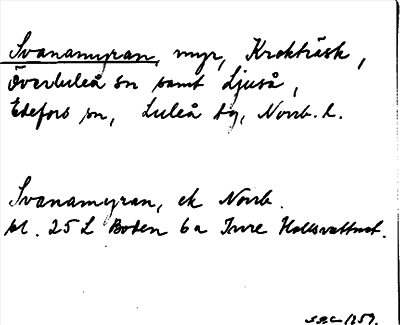 Svanamyran, myr, Krokträsk,
Överluleå sn samt Ljuså,
Edefors sn, Luleå tg, Norrb. l.
Svanamyran, ek Norrb.
bl. 25 L Boden 6a Inre Hallsvattnet.
1959.